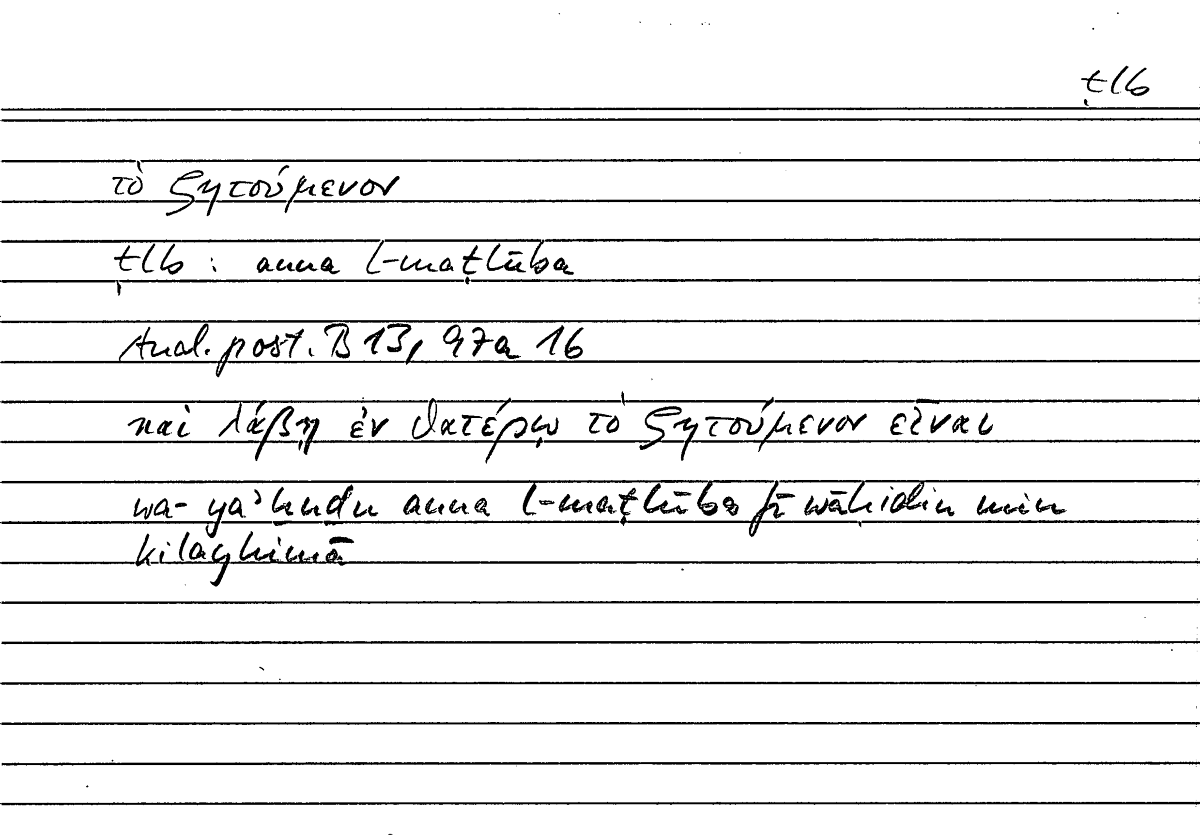 ṭlb
τὸ ζητούμενον
ṭlb : anna l-maṭlūba
Anal. post. B 13, 97a 16
καὶ λάβῃ ἐν θατέρῳ τὸ ζητούμενον εἶναι
wa-yaʾḫuḏu anna l-maṭlūba fī wāḥidin min
kilayhimā